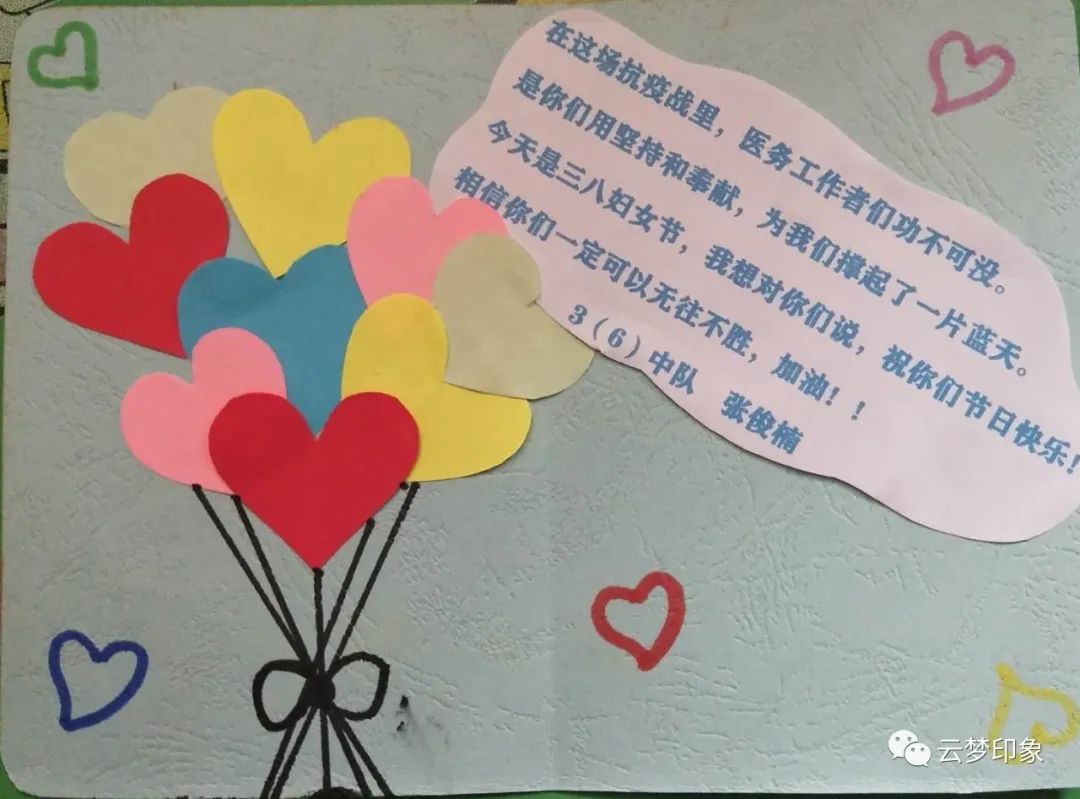 在这场抗疫战里，医务工作者们功不可没。
是你们用坚持和奉献，为我们撑起了一片蓝天。
今天是三八妇女节，我想对你们说，祝你们节日快乐！
相信你们一定可以无往不胜，加油！！
3（6）中队 张俊楠
云梦印象